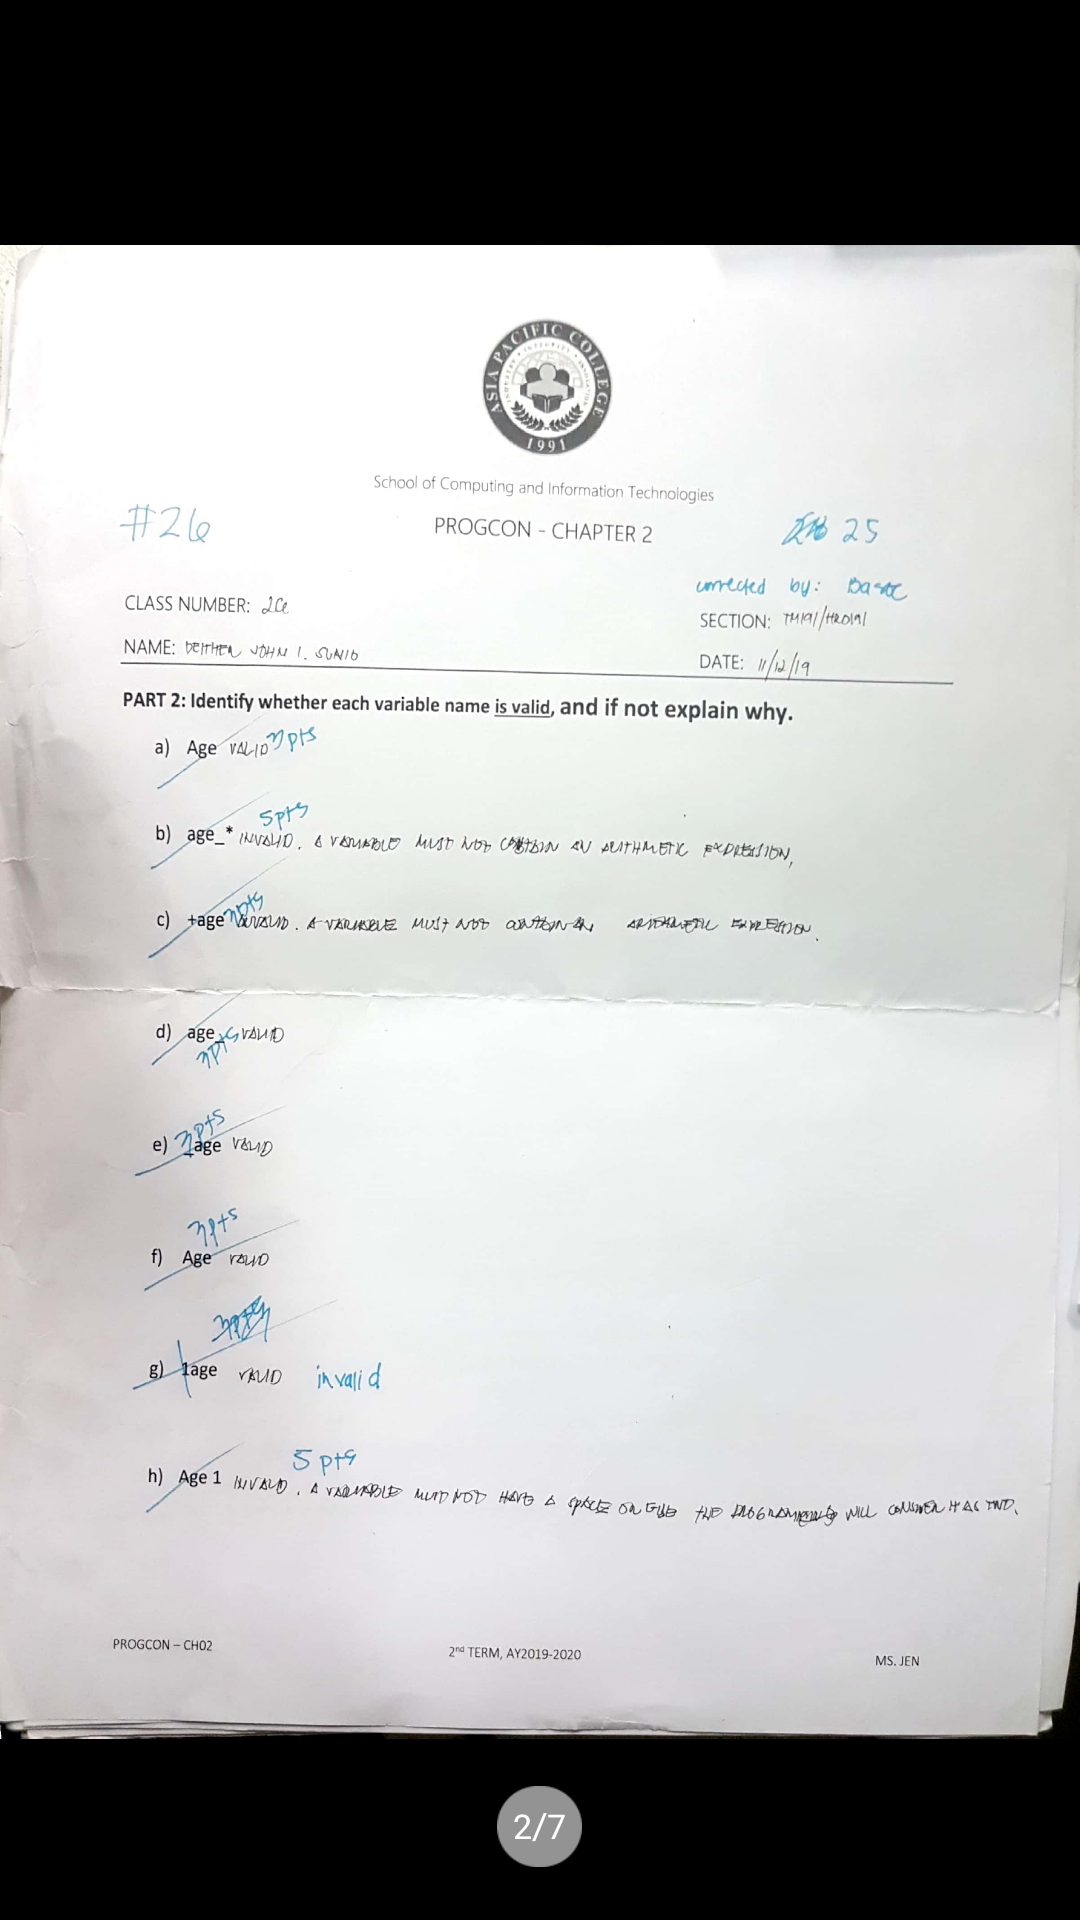 ASIA PACIFIC COLLEGE
1991
School of Computing and Information Technologies
#26
PROGCON - CHAPTER 2
25
corrected by:
CLASS NUMBER: 26
SECTION: TM191/HRD191
NAME: DEITHER JOHN I. SUNIO
DATE: 11/12/19
PART 2: Identify whether each variable name is valid, and if not explain why.
a) Age VALID 3pts
5pts
b) age_* INVALID. A VARIABLE MUST NOT CONTAIN AN ARITHMETIC EXPRESSION,
3pts
c) +age INVALID. A VARIABLE MUST NOT CONTAIN AN ARITHMETIC EXPRESSION.
d) age_ VALID
3pts
3pts
e) _age VALID
3pts
f) Age VALID
g) 1age VALID invalid
5 pts
h) Age 1 INVALID. A VARIABLE MUST NOT HAVE A SPACE OR ELSE THE PROGRAMMING WILL CONSIDER IT AS TWO.
PROGCON – CH02
2nd TERM, AY2019-2020
MS. JEN
2/7